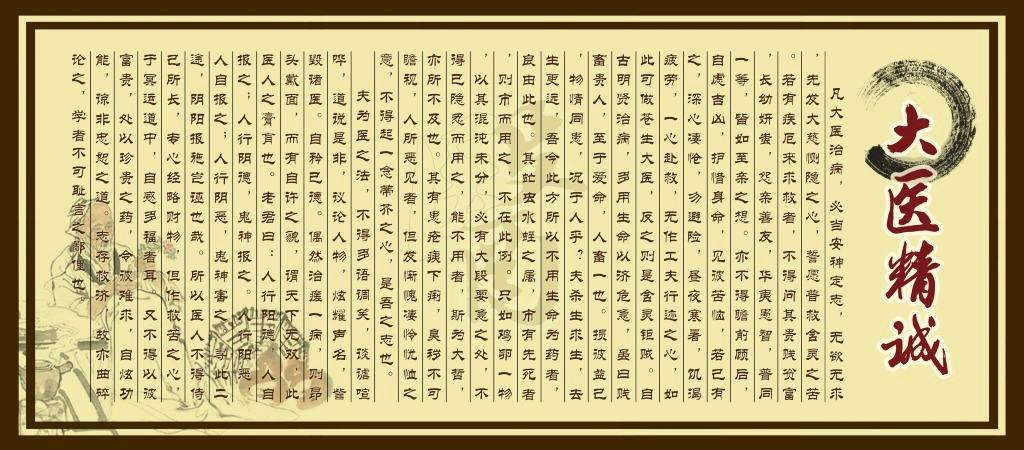 大医精诚
凡大医治病，必当安神定志，无欲无求
，先发大慈恻隐之心，誓愿普救含灵之苦
。若有疾厄来求救者，不得问其贵贱贫富
，长幼妍蚩，怨亲善友，华夷愚智，普同
一等，皆如至亲之想。亦不得瞻前顾后，
自虑吉凶，护惜身命，见彼苦恼，若己有
之，深心凄怆，勿避险，昼夜寒暑，饥渴
疲劳，一心赴救，无作工夫行迹之心，如
此可做苍生大医，反之则是含灵钜贼。自
古明贤治病，多用生命以济危急，虽曰贱
畜贵人，至于爱命，人畜一也。损彼益己
，物情同患，况于人乎？夫杀生求生，去
生更远。吾今此方所以不用生命为药者，
良由此也。其虻虫水蛭之属，市有先死者
，则市而用之，不在此例。只如鸡卵一物
，以其混沌未分，必有大段要急之处，不
得已隐忍而用之，能不用者，斯为大哲，
亦所不及也。其有患疮痍下痢，臭秽不可
瞻视，人所恶见者，但发惭愧凄怜忧恤之
意，不得起一念蒂芥之心，是吾之志也。
夫为医之法，不得多语调笑，谈谑喧
哗，道说是非，议论人物，炫耀声名，訾
毁诸医。自矜己德。偶然治瘥一病，则昂
头戴面，而有自许之貌，谓天下无双，此
医人之膏肓也。老君曰：人行阳德，人自
报之；人行阴德，鬼神报之。人行阳恶，
人自报之；人行阴恶，鬼神害之。寻此二
途，阴阳报施岂诬也哉。所以医人不得侍
己所长，专心经略财物，但作救苦之心，
于冥运道中，自感多福者耳。又不得以彼
富贵，处以珍贵之药，令彼难求，自炫功
能，谅非忠恕之道。志存救济，故亦曲碎
论之，学者不可耻言之鄙俚也。